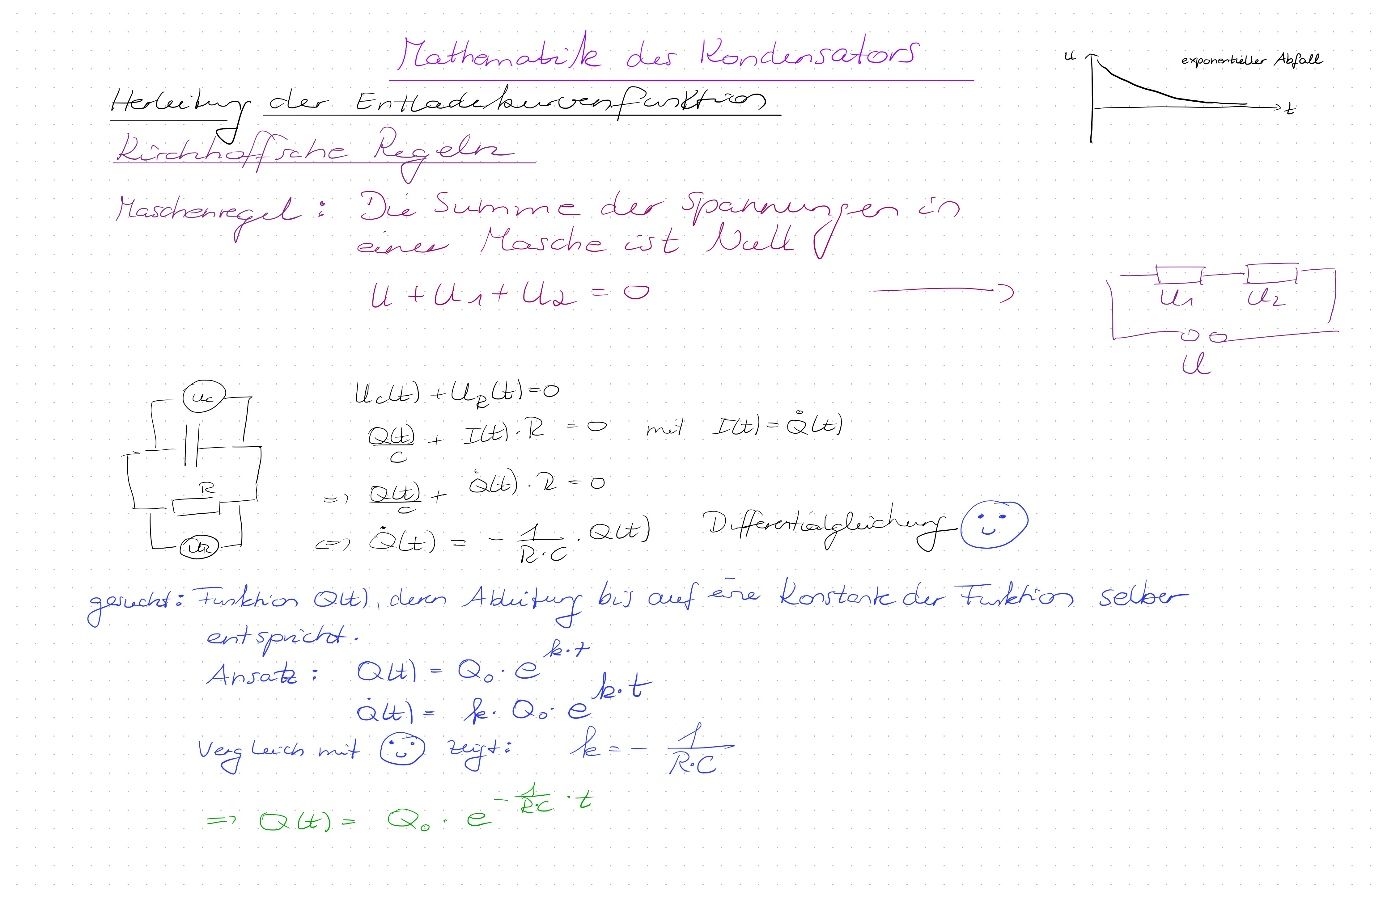 Mathematik des Kondensators
U
exponentieller Abfall
t
Herleitung der Entladekurvenfunktion
Kirchhoffsche Regeln
Maschenregel: Die Summe der Spannungen in
einer Masche ist Null
U + U1 + U2 = 0
U1 U2
U
Uc
R
UR
Uc(t) + UR(t) = 0
Q(t)/C + I(t) · R = 0 mit I(t) = Q̇(t)
=> Q(t)/C + Q̇(t) · R = 0
<=> Q̇(t) = - 1/(R·C) · Q(t) Differentialgleichung ☺
gesucht: Funktion Q(t), deren Ableitung bis auf eine Konstante der Funktion selber
entspricht.
Ansatz: Q(t) = Q₀ · e^(k·t)
Q̇(t) = k · Q₀ · e^(k·t)
Vergleich mit ☺ zeigt: k = - 1/(R·C)
=> Q(t) = Q₀ · e^(-1/(R·C) · t)